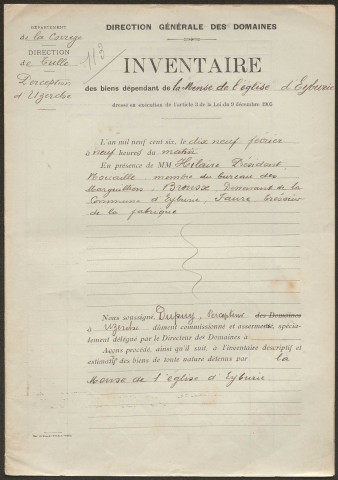 DÉPARTEMENT
de la Corrèze
DIRECTION
de Tulle
Perception
d'Uzerche
DIRECTION GÉNÉRALE DES DOMAINES
INVENTAIRE
des biens dépendant de la Mense de l'église d'Eyburie
dressé en exécution de l'article 3 de la Loi du 9 décembre 1905
L'an mil neuf cent six, le dix neuf février
à neuf heures du matin
En présence de MM Hilaire Président
membre du bureau des
Marguilliers Brousse, Desservant de la
Commune d'Eyburie, Faure trésorier
de la fabrique
Nous soussigné, Dupuy, Percepteur des Domaines
à Uzerche dûment commissionné et assermenté, spécia-
lement délégué par le Directeur des Domaines à
Avons procédé, ainsi qu'il suit à l'inventaire descriptif et
estimatif des biens de toute nature détenus par la
Mense de l'église d'Eyburie